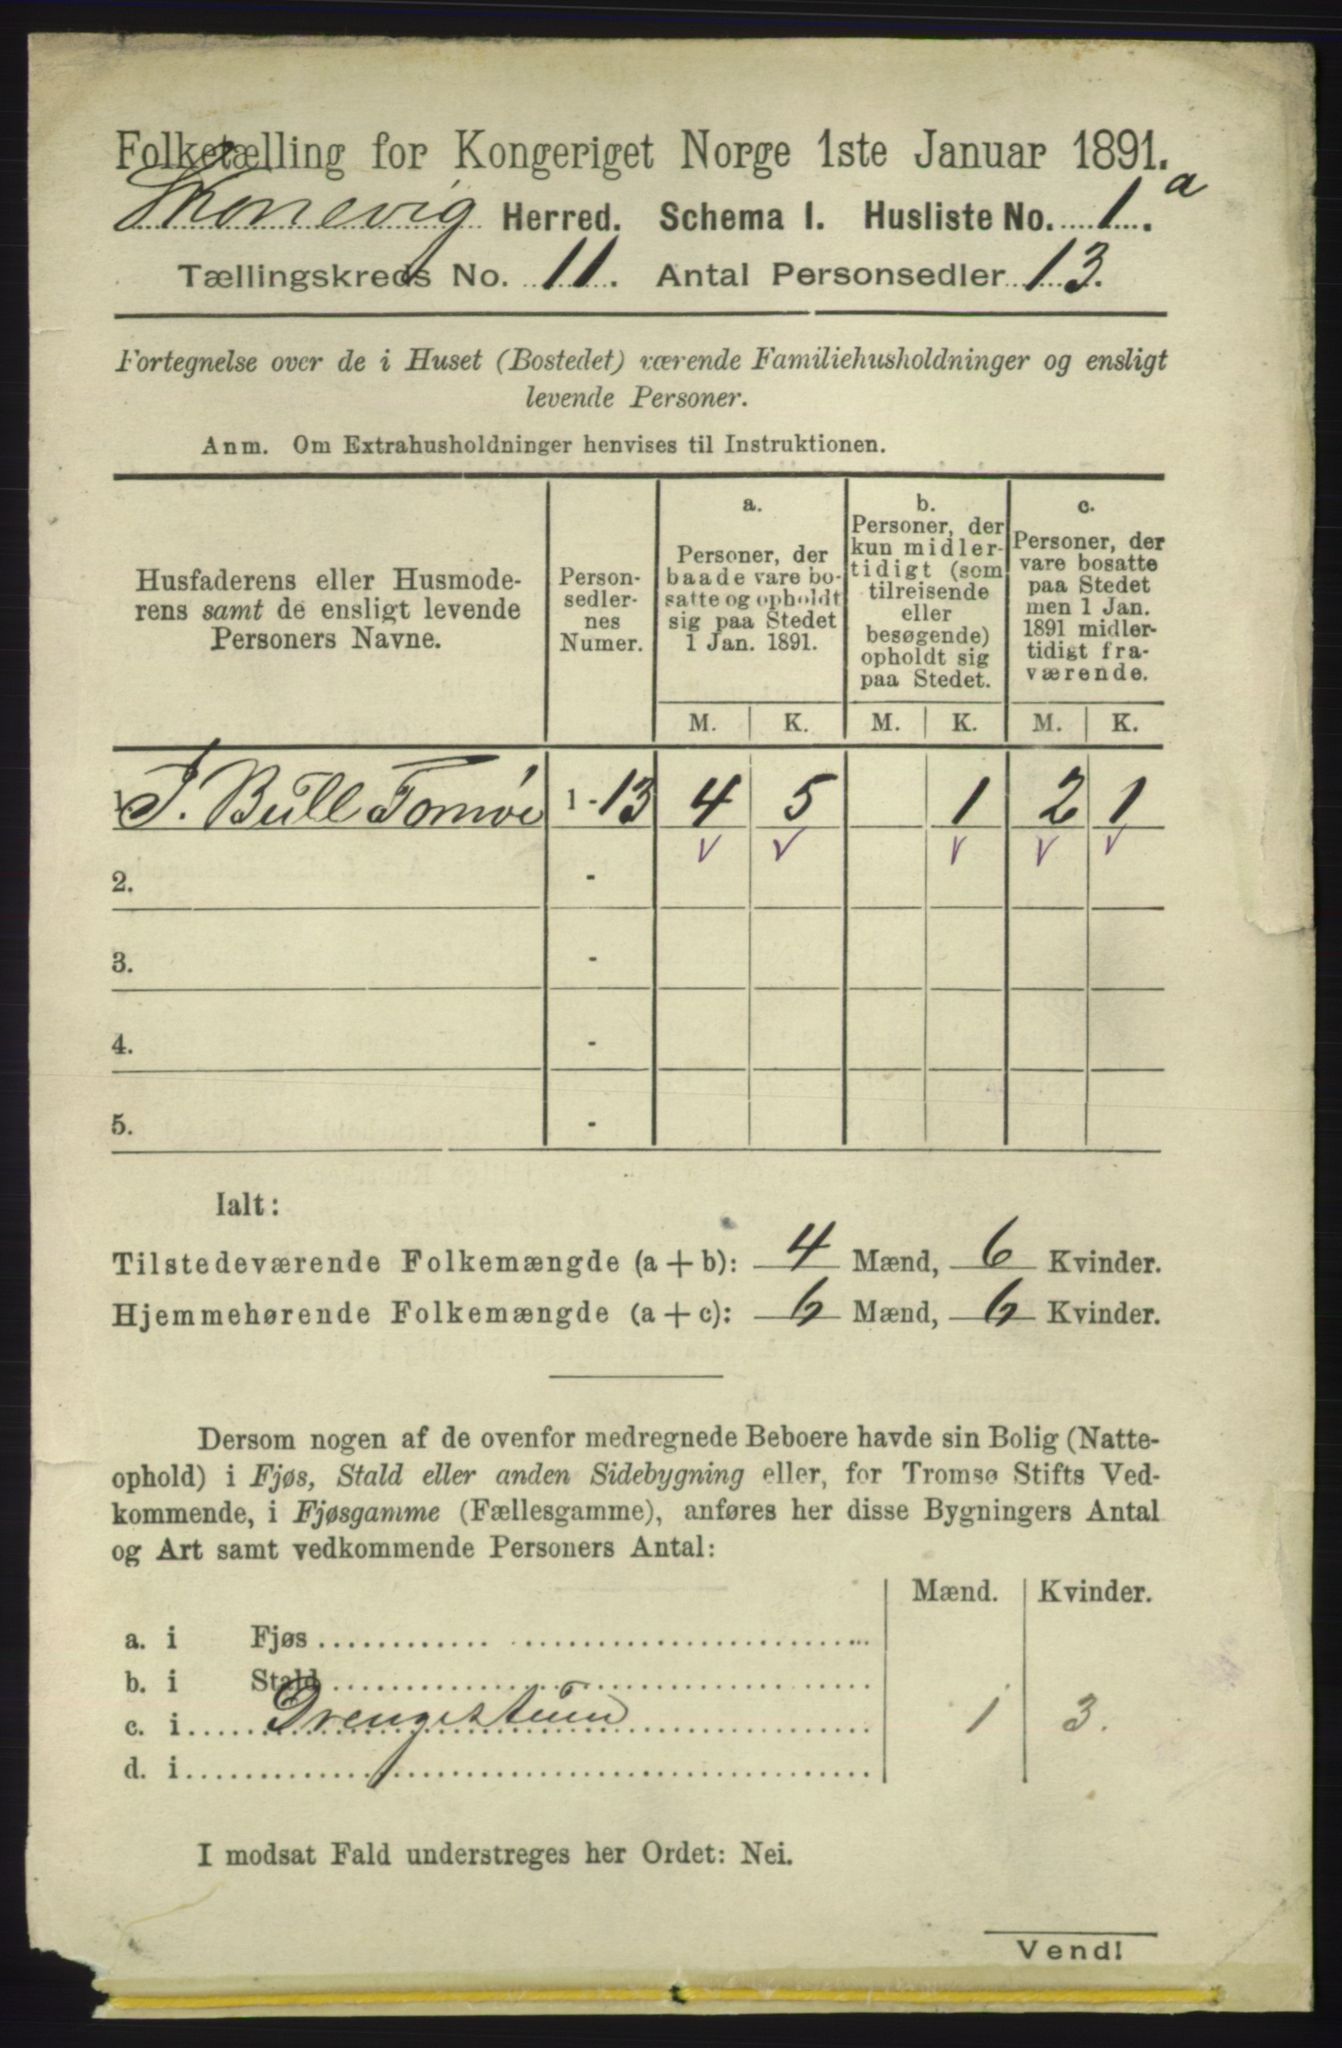 Folketælling for Kongeriget Norge 1ste Januar 1891.
Skonevig Herred. Schema I. Husliste No. 1.a
Tællingskreds No. 11. Antal Personsedler 13.
Fortegnelse over de i Huset (Bostedet) værende Familiehusholdninger og ensligt
levende Personer.
Anm. Om Extrahusholdninger henvises til Instruktionen.
Husfaderens eller Husmode-
rens samt de ensligt levende
Personers Navne.
Person-
sedler-
nes
Numer.
a.
Personer, der
baade vare bo-
satte og opholdt
sig paa Stedet
1 Jan. 1891.
b.
Personer, der
kun midler-
tidigt (som
tilreisende
eller
besøgende)
opholdt sig
paa Stedet.
c.
Personer, der
vare bosatte
paa Stedet
men 1 Jan.
1891 midler-
tidigt fra-
værende.
M. K. M. K. M. K.
1. J. Bull Tomøe 1 - 13 4 5 1 2 1
2. -
3. -
4. -
5. -
Ialt:
Tilstedeværende Folkemængde (a + b): 4 Mænd, 6 Kvinder.
Hjemmehørende Folkemængde (a + c): 6 Mænd, 6 Kvinder.
Dersom nogen af de ovenfor medregnede Beboere havde sin Bolig (Natte-
ophold) i Fjøs, Stald eller anden Sidebygning eller, for Tromsø Stifts Ved-
kommende, i Fjøsgamme (Fællesgamme), anføres her disse Bygningers Antal
og Art samt vedkommende Personers Antal:
Mænd. Kvinder.
a. i Fjøs
b. i Stald
c. i Drengestuen 1 3.
d. i
I modsat Fald understreges her Ordet: Nei.
Vend!